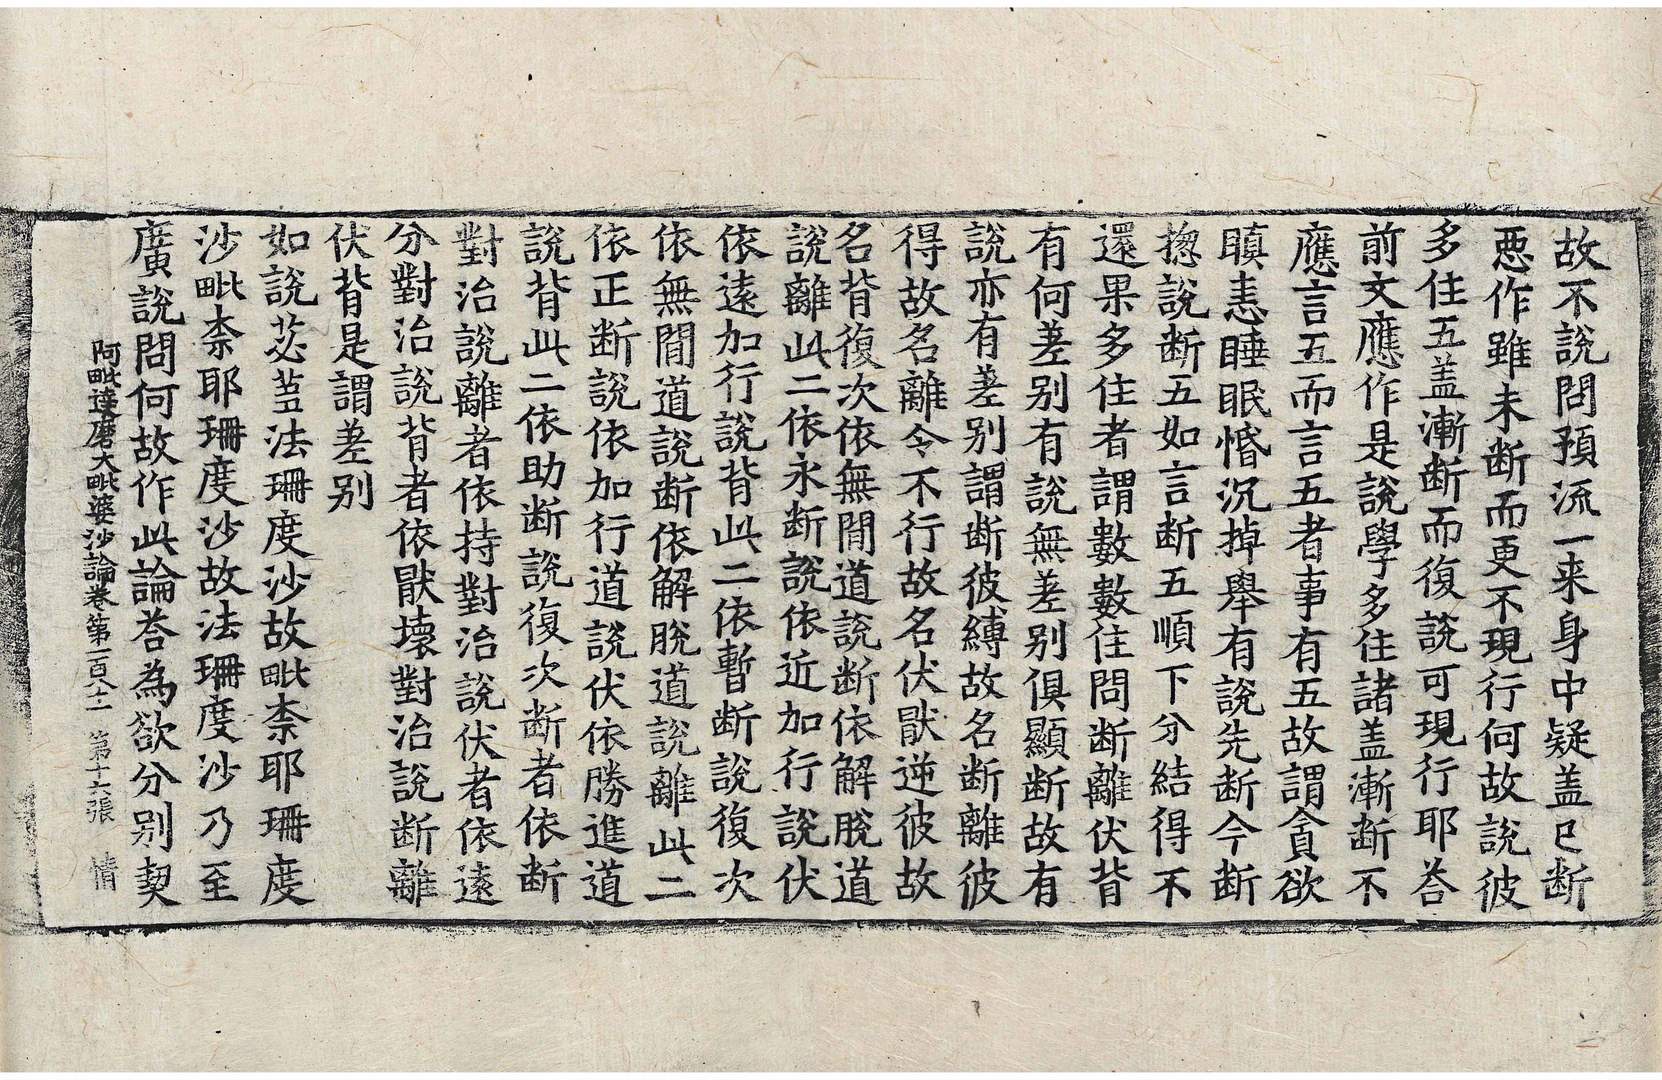 故不說問預流一来身中疑盖已断
惡作雖未断而更不現行何故說彼
多住五盖漸断而復說可現行耶荅
前文應作是說學多住諸盖漸断不
應言五而言五者事有五故謂貪欲
瞋恚睡眠惛沉掉舉有說先断今断
揔說断五如言断五順下分結得不
還果多住者謂數數住問断離伏背
有何差别有說無差别俱顯断故有
說亦有差别謂断彼縛故名断離彼
得故名離令不行故名伏猒逆彼故
名背復次依無間道說断依解脫道
說離此二依永断說依近加行說伏
依遠加行說背此二依暫断說復次
依無間道說断依解脫道說離此二
依正断說依加行道說伏依勝進道
說背此二依助断說復次断者依断
對治說離者依持對治說伏者依遠
分對治說背者依猒壞對治說断離
伏背是謂差别
如說苾芻法珊度沙故毗柰耶珊度
沙毗柰耶珊度沙故法珊度沙乃至
廣說問何故作此論荅為欲分别契
阿毗達磨大毗婆沙論卷第一百八十一 第十六張 情